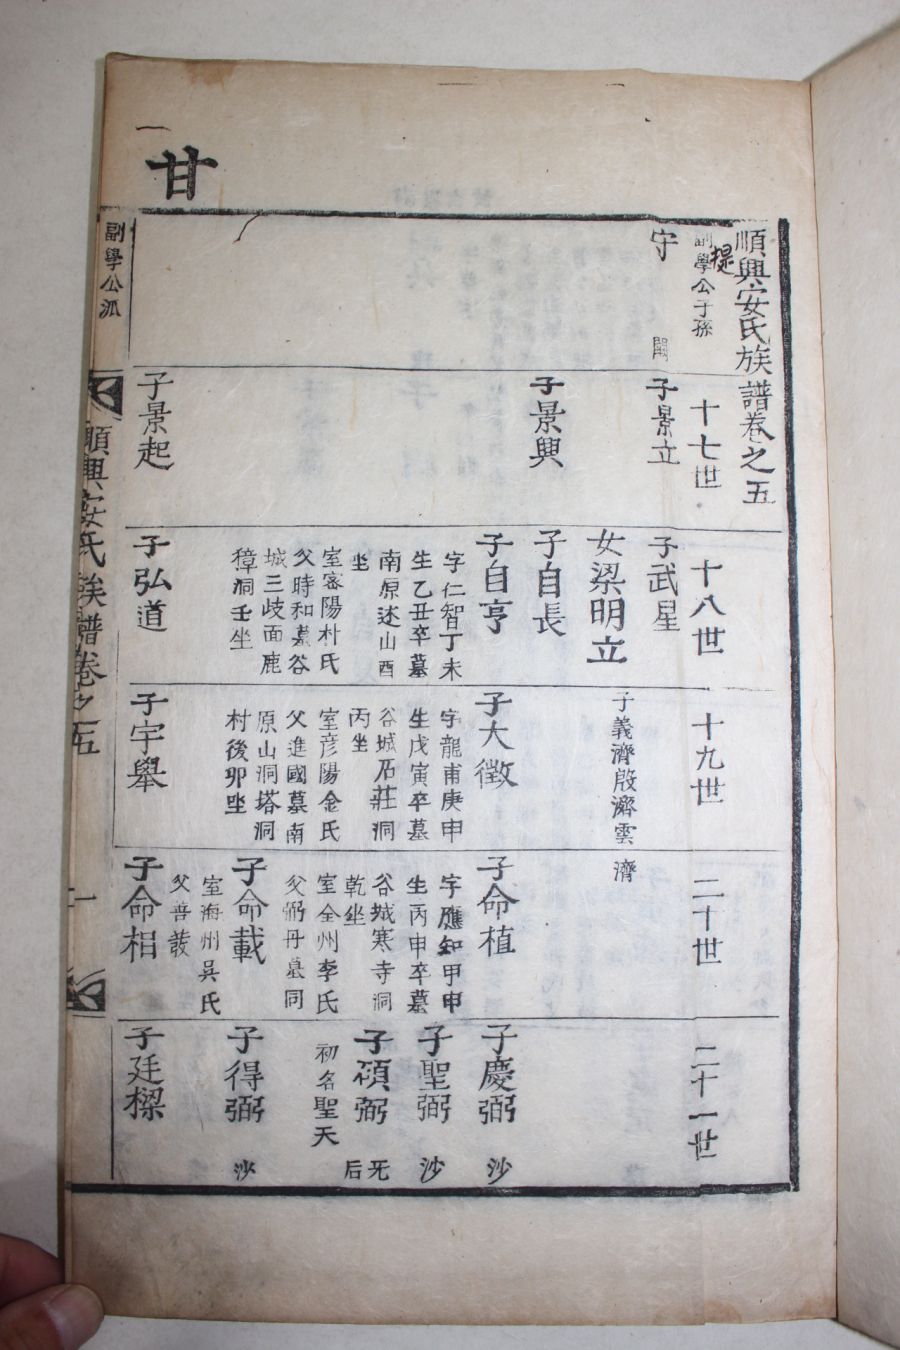 甘
順興安氏族譜卷之五
提
副學公子孫
十七世
十八世
十九世
二十世
二十一世
守
子景立
子景興
子景起
子武星
女梁明立
子自長
子自亨
字仁智丁未
生乙丑卒墓
南原述山酉
坐
室密陽朴氏
父時和墓谷
城三歧面鹿
獐洞壬坐
子弘道
子義濟殷濟雲
濟
子大徵
字龍甫庚申
生戊寅卒墓
谷城石莊洞
丙坐
室彦陽金氏
父進國墓南
原山洞塔洞
村後卯坐
子宇舉
子命植
字應知甲申
生丙申卒墓
谷城寒寺洞
乾坐
室全州李氏
父弼丹墓同
子命載
室海州吳氏
父善
子命相
子慶弼
沙
子聖弼
沙
子碩弼
初名聖天
无后
子得弼
沙
子廷樑
副學公派
順興安氏族譜卷之五
一